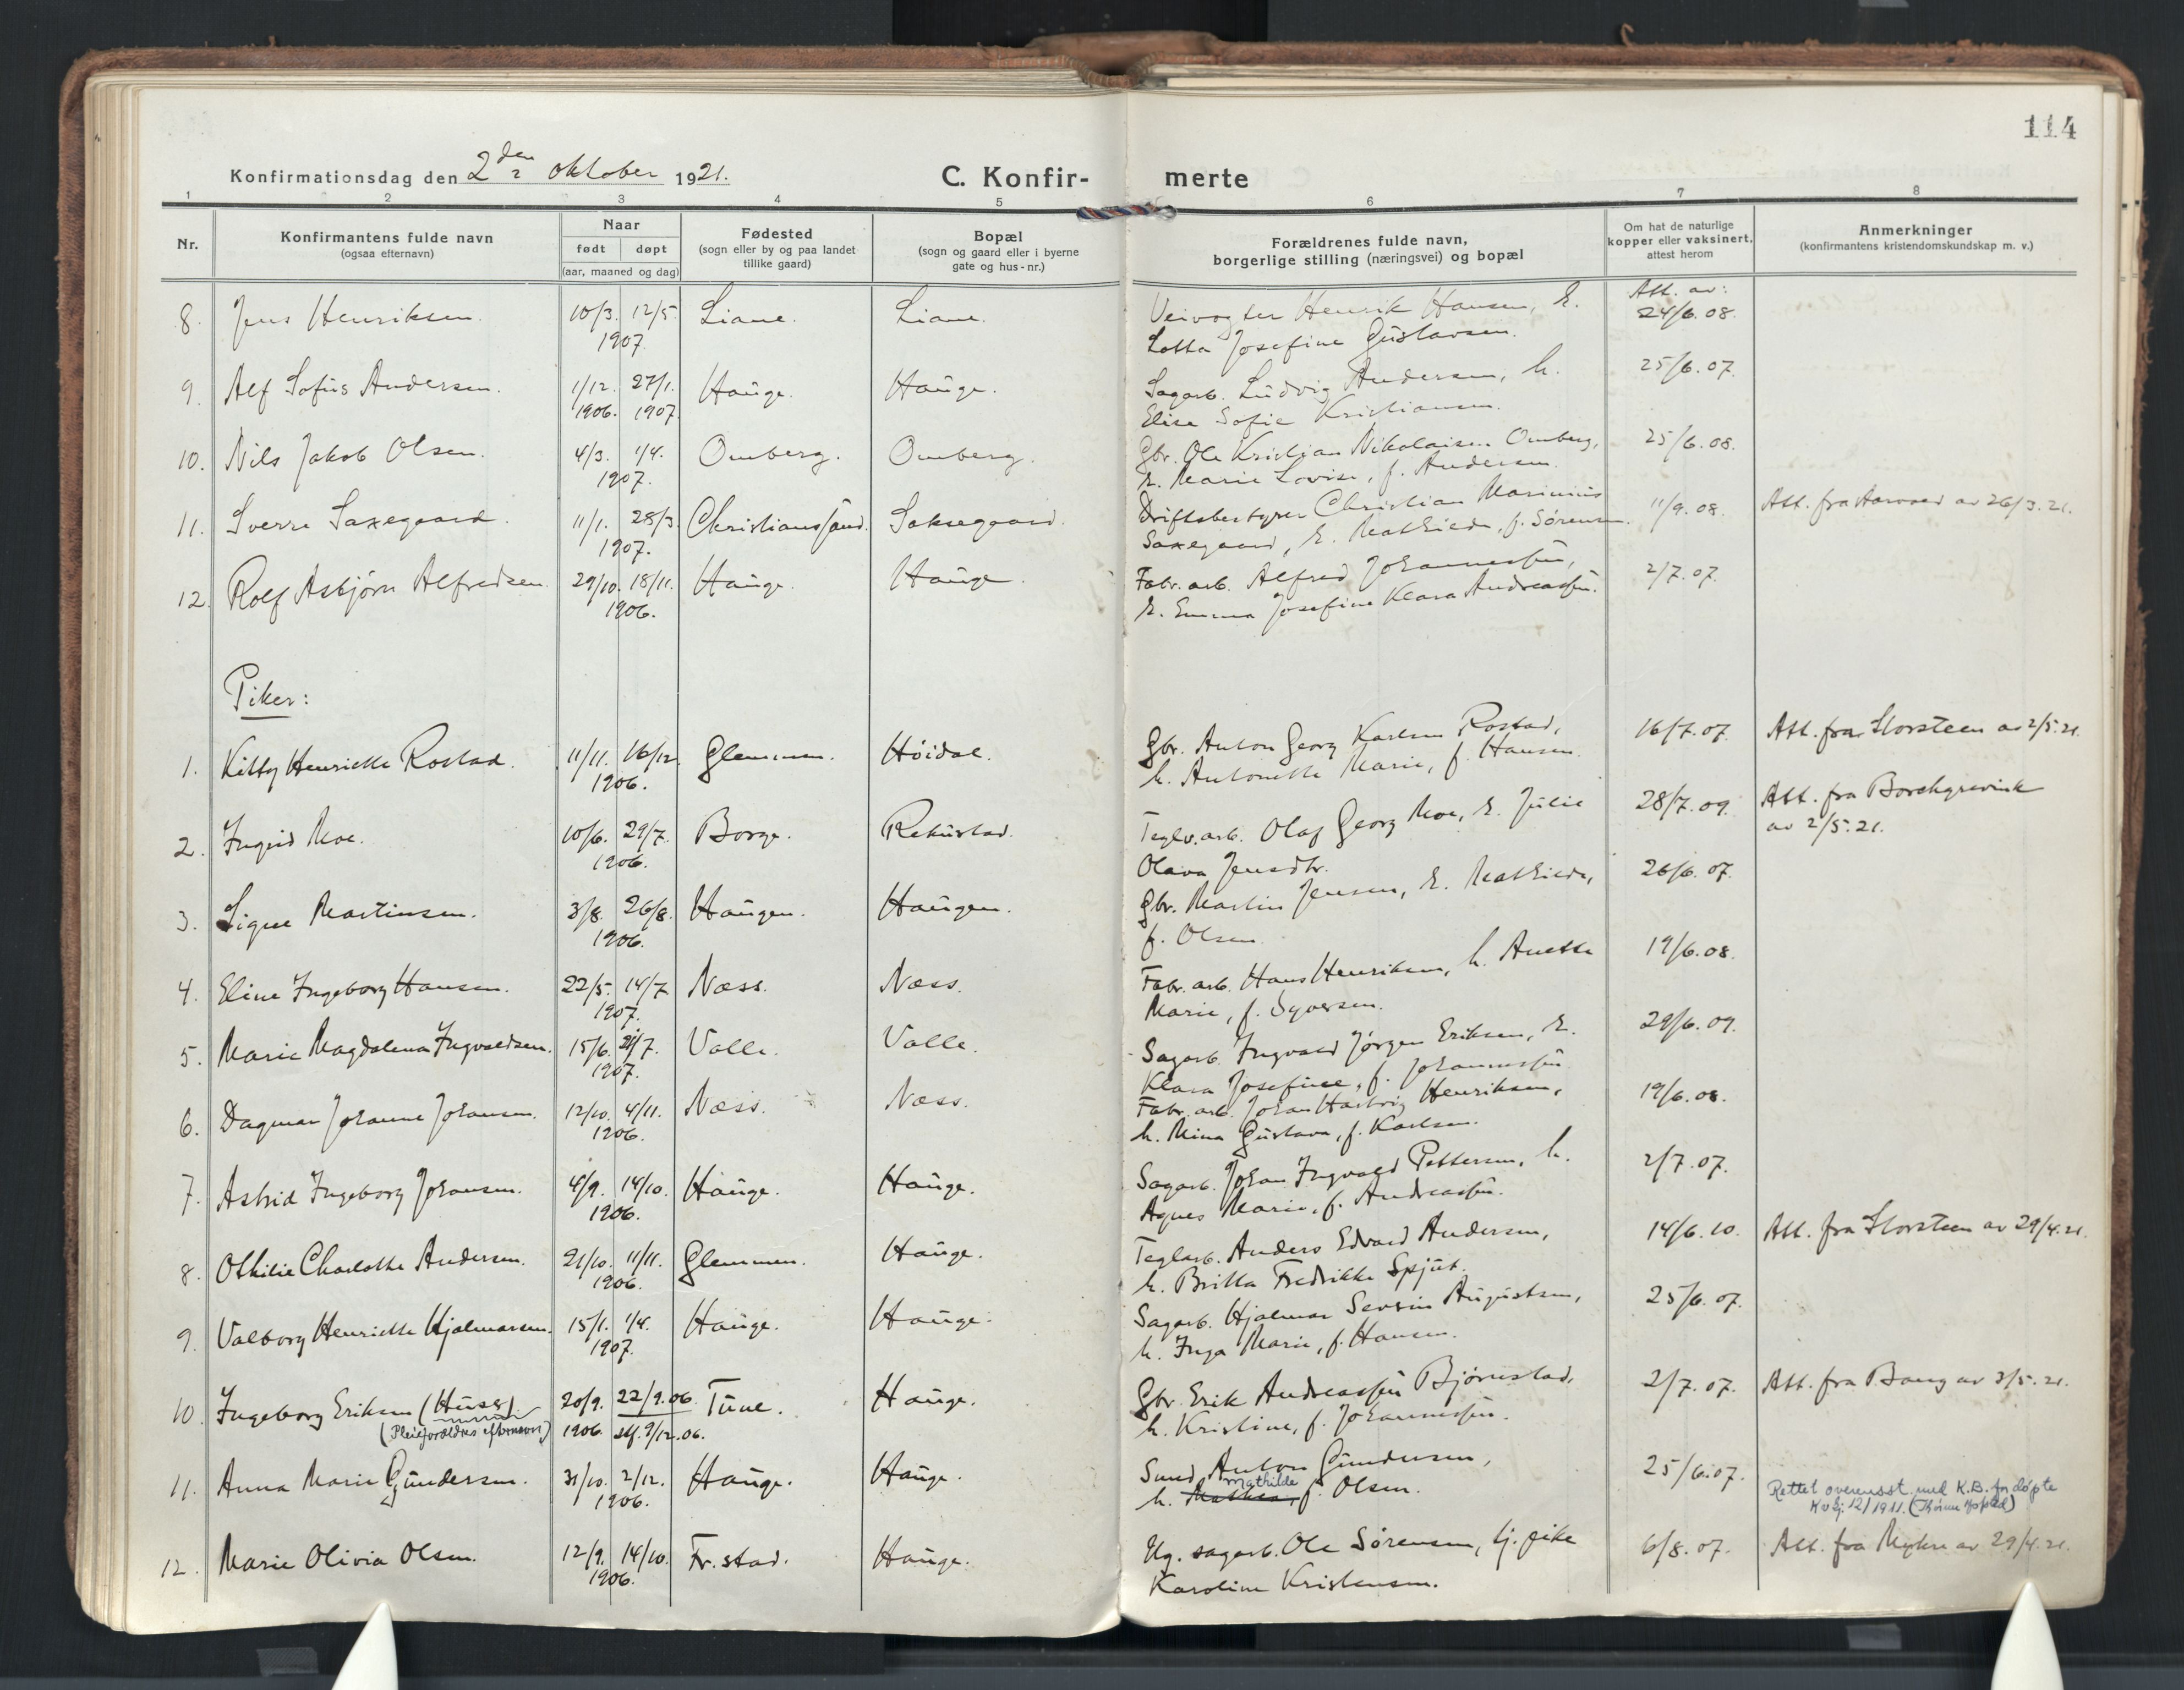 114
Konfirmationsdag den 2den oktober 1921.
C. Konfir- merte
1 2 3 4 5 6 7 8
Nr.
Konfirmantens fulde navn
(ogsaa efternavn)
Naar
født døpt
(aar, maaned og dag)
Fødested
(sogn eller by og paa landet
tillike gaard)
Bopæl
(sogn og gaard eller i byerne
gate og hus-nr.)
Forældrenes fulde navn,
borgerlige stilling (næringsvei) og bopæl
Om hat de naturlige
kopper eller vaksinert,
attest herom
Anmerkninger
(konfirmantens kristendomskundskap m. v.)
8. Jens Henriksen. 10/3. 12/5. Liane. Liane. Veivogter Henrik Hansen, h. Att. av: 24/6.08.
1907. Lotta Josefine Gustavsen.
9. Alf Sofus Andersen. 1/12. 27/1. Hauge. Hauge. Sagarb. Ludvig Andersen, h. 25/6.07.
1906. 1907. Elise Sofie Kristiansen.
10. Nils Jakob Olsen. 4/3. 1/4. Omberg. Omberg. Gbr. Ole Kristian Nikolaisen Omberg, 25/6.08.
1907. h. Marie Lovise, f. Andersen.
11. Sverre Saxegaard. 11/1. 28/3. Christianssand. Saksegaard. Driftsbestyrer Christian Marinius 11/9.08. Att. fra Aarvaad av 26/3.21.
1907. Saxegaard, h. Mathilde, f. Sørensen.
12. Rolf Asbjørn Alfredsen. 29/10. 18/11. Hauge. Hauge. Fabr. arb. Alfred Johannessen, 2/7.07.
1906. h. Emma Josefine Klara Andreassen.
Piker:
1. Kitty Henriette Rostad. 11/11. 16/12. Glemmen. Høidal. Gbr. Anton Georg Karlsen Rostad, 16/7.07. Att. fra Storsteen av 2/5.21.
1906. h. Antonette Marie, f. Hansen.
2. Ingrid Moe. 10/6. 29/7. Borge. Rekustad. Teglv.arb. Olaf Georg Moe, h. Julie 28/7.09. Att. fra Borchgrevink
1906. Olava Jensdtr. av 2/5.21.
3. Signe Martinsen. 3/8. 26/8. Haugen. Haugen. Gbr. Martin Jensen, h. Mathilde, 26/6.07.
1906. f. Olsen.
4. Eline Ingeborg Hansen. 22/5. 14/7 Næss. Næss. Fabr. arb. Hans Henriksen, h. Anette 19/6.08.
1907. Marie, f. Syversen.
5. Marie Magdalena Ingvaldsen. 15/6. 7. Valle. Valle. Sagarb. Ingvald Jørgen Eriksen, h. 29/6.09.
1907. Klara Josefine, f. Johannessen.
6. Dagmar Johanne Johansen. 12/10. 4/11. Næss. Næss. Fabr. arb. Johan Hartvig Henriksen, 19/6.08.
1906. h. Mina Gustava, f. Karlsen.
7. Astrid Ingeborg Johansen. 4/9. 14/10. Hauge. Hauge. Sagarb. Johan Ingvald Pettersen, h. 2/7.07.
1906. Agnes Marie, f. Andreassen.
8. Othilie Charlotte Andersen. 21/10. 11/11. Glemmen. Hauge. Teglarb. Anders Edvard Andersen, 14/6.10. Att. fra Storsteen av 29/4.21.
1906. h. Britta Fredrikke Spjut.
9. Valborg Henriette Hjalmarsen. 15/1. 1/4. Hauge. Hauge. Sagarb. Hjalmar Sevrin Augustsen, 25/6.07.
1907. h. Inga Marie, f. Hansen.
10. Ingeborg Eriksen (Huser). 20/9. 22/9.06. Tune. Hauge. Gbr. Erik Andreassen Bjørnstad, 2/7.07. Att. fra Bang av 3/5.21.
(Pleiforældres efternavn) 1906. stf. 9/12.06. h. Kristine, f. Johannessen.
11. Anna Marie Gundersen. 31/10. 2/12. Hauge. Hauge. Smed Anton Gundersen, 25/6.07.
1906. h. Mathea, Mathilde f. Olsen. Rettet overensst. med K.B. for døpte
12/1911.
12. Marie Olivia Olsen. 12/9. 14/10. Fr.stad. Hauge. Ug. sagarb. Ole Sørensen, tj. pike 6/8.07. Att. fra Myhre av 29/4.21.
1906. Karoline Kristensen.